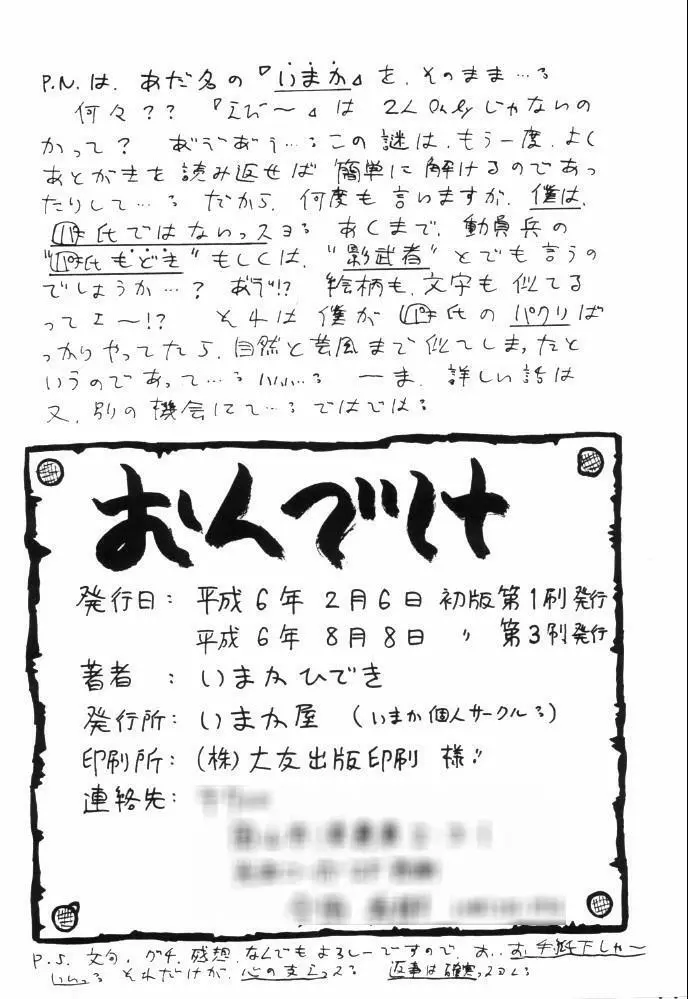 P.N.は、あだ名の『いまか』を、そのまま…。
何々??『えび〜』は2人Onlyじゃないの
かって? あ゛う゛あ゛う…。この謎は、もう一度、よく
あとがきを読み返せば簡単に解けるのであっ
たりして…。だから、何度も言いますが、僕は、
氏ではないっスヨ。あくまで、動員兵の
氏もどき"もしくは、"影武者"とでも言うの
でしょうか…? あ゛う゛!? 絵柄も、文字も似てる
ってェ〜!? それは僕が氏のパクリば
っかりやってたら、自然と芸風まで似てしまったと
いうのであって…。ーま、詳しい話は
又、別の機会にて…。ではでは。
おんでけ
発行日: 平成6年 2月6日 初版第1刷発行
平成6年 8月8日 〃 第3刷発行
著者 : いまかひでき
発行所: いまか屋 (いまか個人サークル。)
印刷所: (株)大友出版印刷 様!!
連絡先:
P.S. 文句、グチ、感想、なんでもよろしーですので、お、お手紙下しゃ〜
いっ。それだけが、心の支えっス。 返事は確実っスよ。